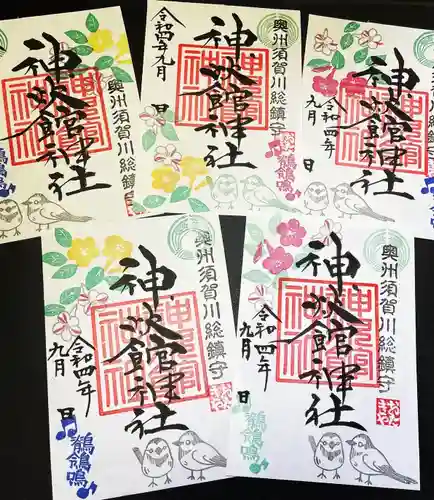 奥州須賀川総鎮守
神炊館神社
奥州須賀川総鎮守
神炊館神社
令和四年九月 日
鶺鴒鳴
神炊館神社
令和四年九月 日
奥州須賀川総鎮守
神炊館神社
令和四年九月 日
鶺鴒鳴
奥州須賀川総鎮守
神炊館神社
令和四年九月 日
鶺鴒鳴